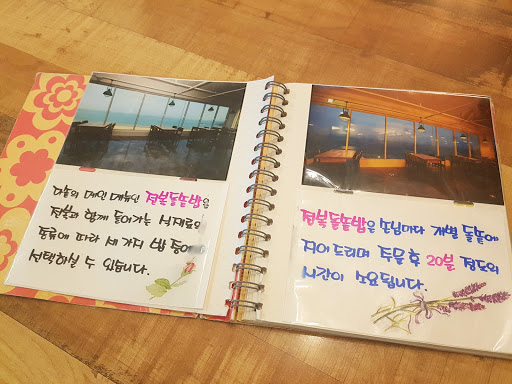 다놀의 메인 메뉴인 전복돌솥밥은
전복과 함께 들어가는 식재료의
종류에 따라 세 가지 밥 중에
선택하실 수 있습니다.
전복돌솥밥은 손님마다 개별 돌솥에
지어 드리며 주문 후 20분 정도의
시간이 소요됩니다.